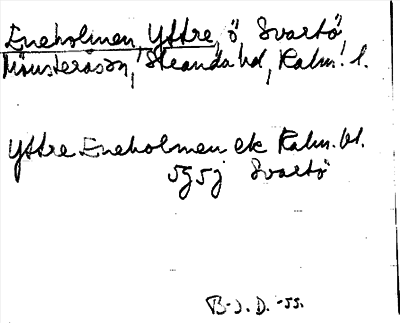 Eneholmen, Yttre, ö Svartö,
Mönsterås sn, Stranda hd, Kalm. l.
Yttre Eneholmen ek Kalm. bl.
5g5j Svartö
B-J. D. -55.